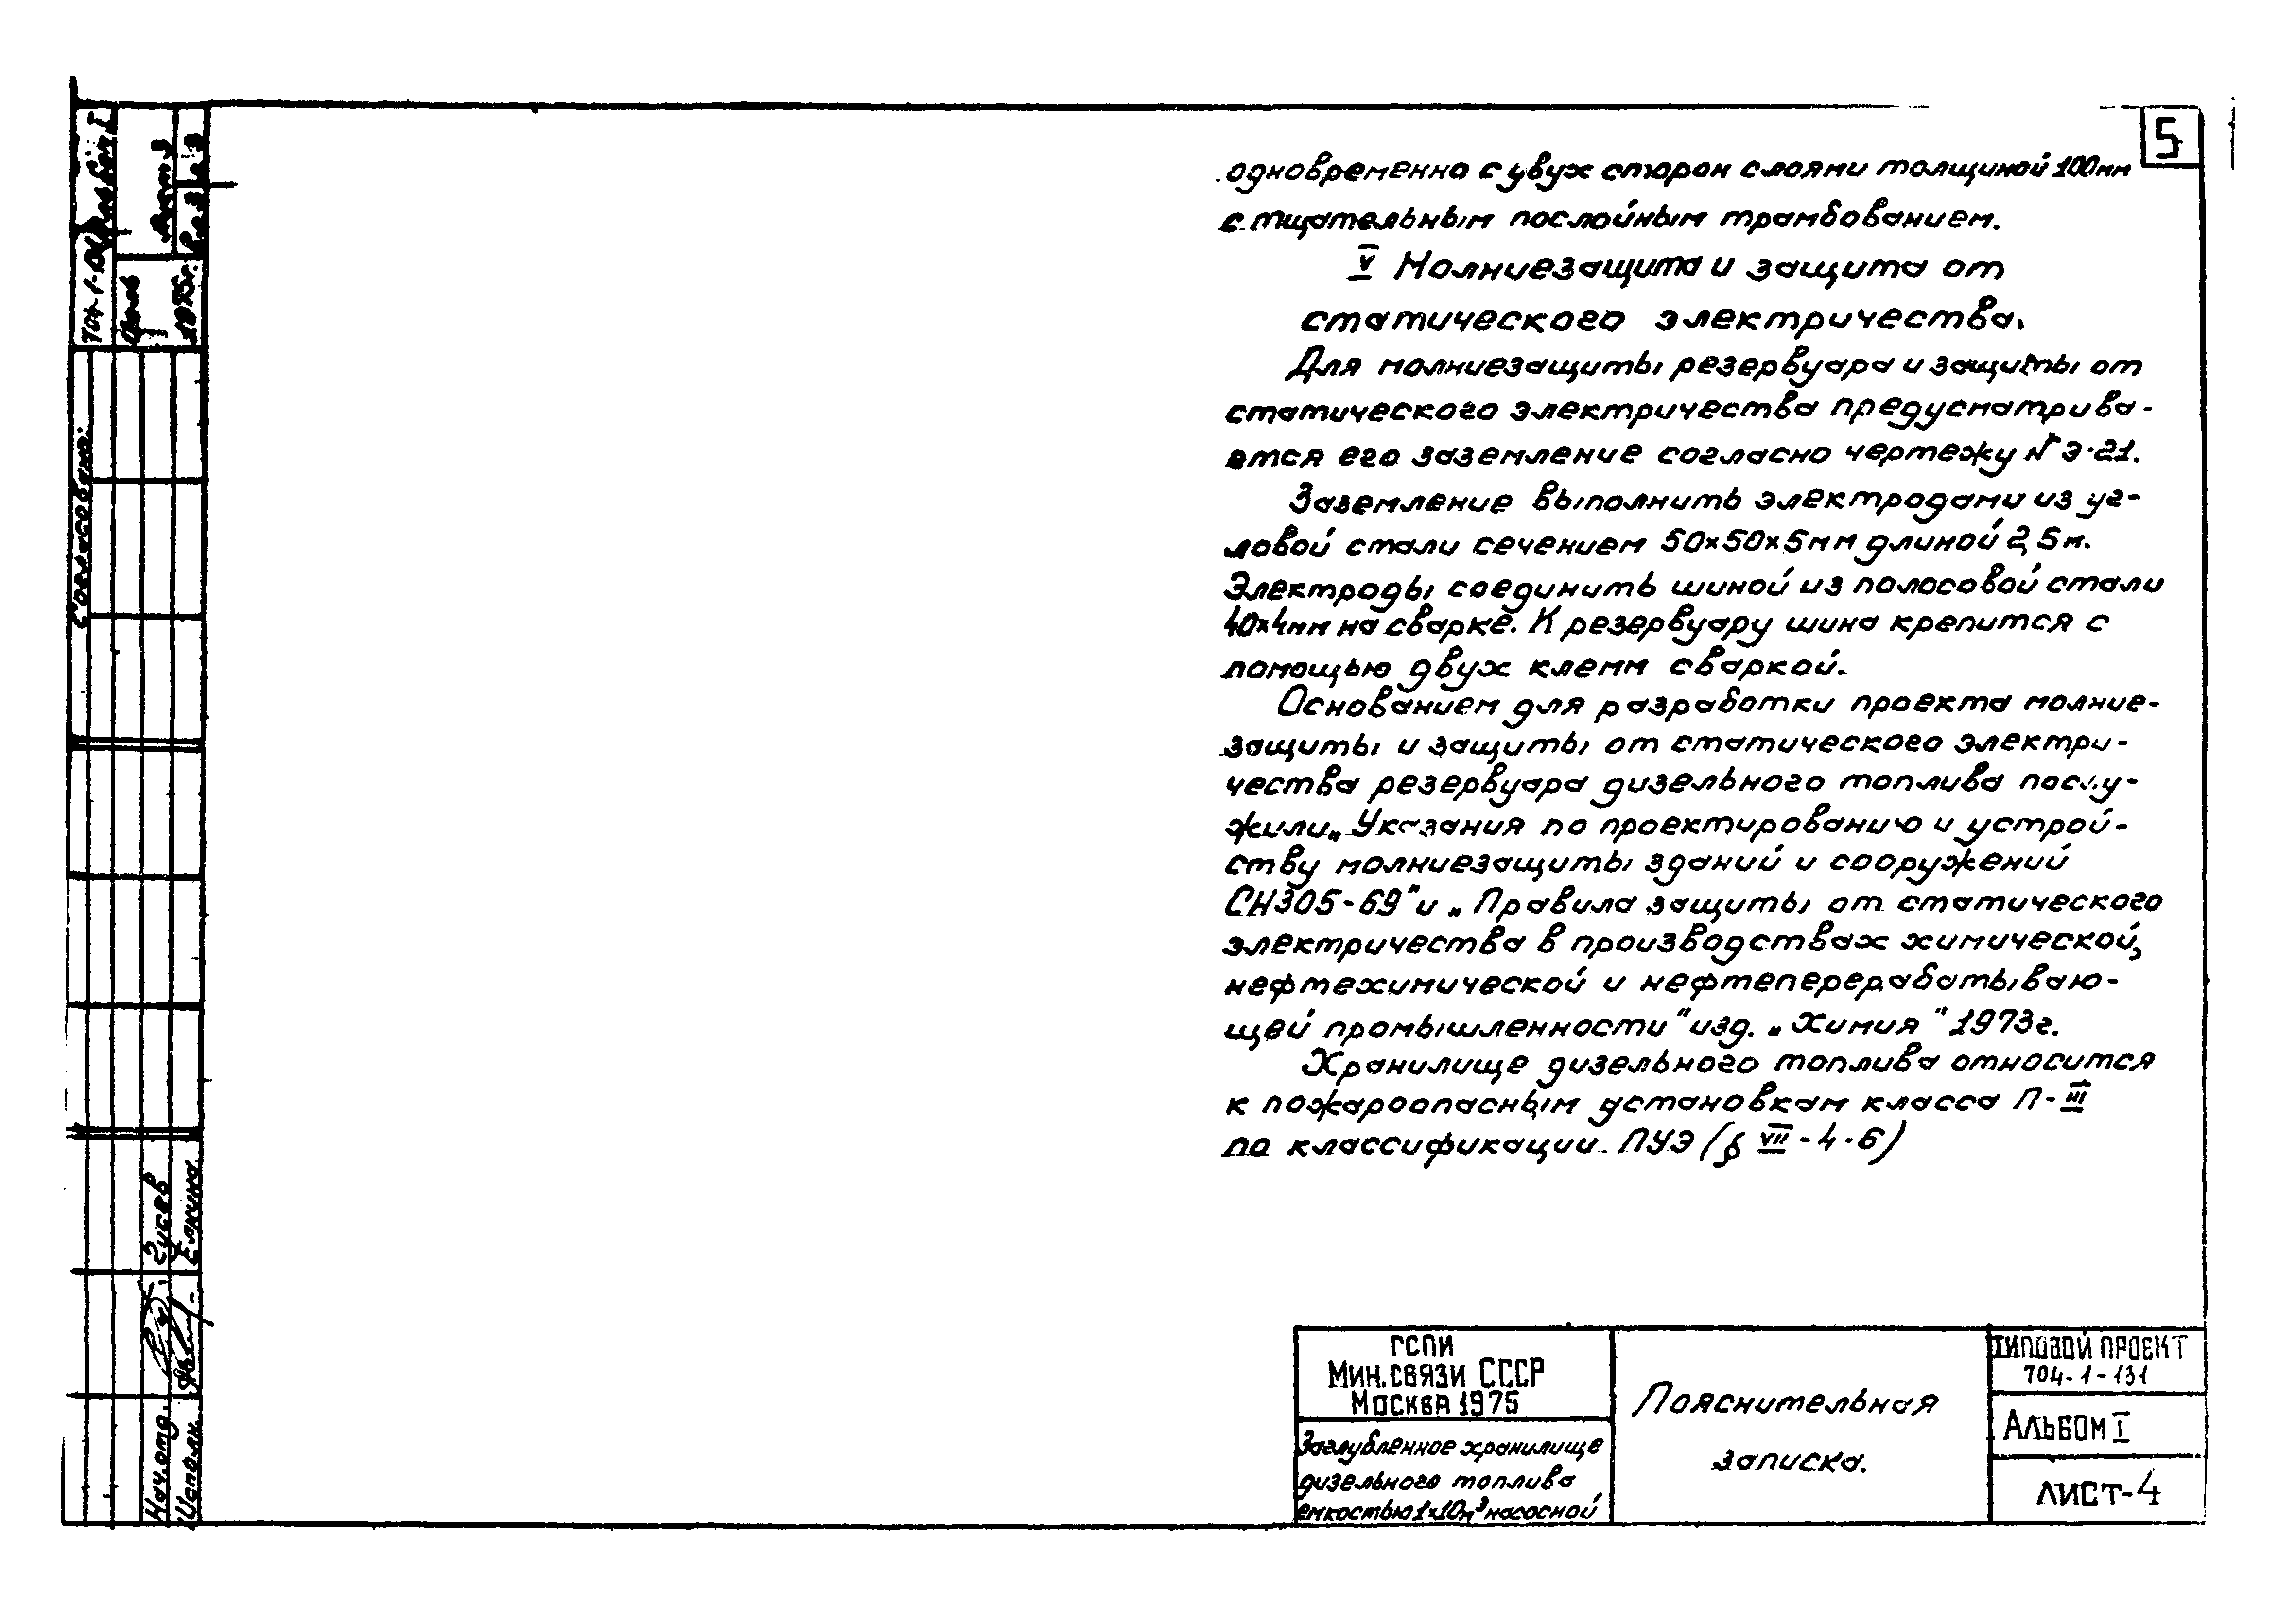 5
одновременно с двух сторон слоями толщиной 100мм
с тщательным послойным трамбованием.
V Молниезащита и защита от
статического электричества.
Для молниезащиты резервуара и защиты от
статического электричества предусматрива-
ется его заземление согласно чертежу № Э-21.
Заземление выполнить электродами из уг-
ловой стали сечением 50х50х5мм длиной 2,5м.
Электроды соединить шиной из полосовой стали
40х4мм на сварке. К резервуару шина крепится с
помощью двух клемм сваркой.
Основанием для разработки проекта молние-
защиты и защиты от статического электри-
чества резервуара дизельного топлива послу-
жили „Указания по проектированию и устрой-
ству молниезащиты зданий и сооружений
СН305-69" и „Правила защиты от статического
электричества в производствах химической,
нефтехимической и нефтеперерабатываю-
щей промышленности" изд. „Химия" 1973г.
Хранилище дизельного топлива относится
к пожароопасным установкам класса П-III
по классификации ПУЭ (§ VII-4-6)
ГСПИ
Мин. связи СССР
Москва 1975
Заглубленное хранилище
дизельного топлива
емкостью 1х10м³ насосной
Пояснительная
записка.
ТИПОВОЙ ПРОЕКТ
704-1-131
Альбом I
ЛИСТ-4
Согласовано:
1975г.
Нач. отд. Гусев
Исполн. Елкина